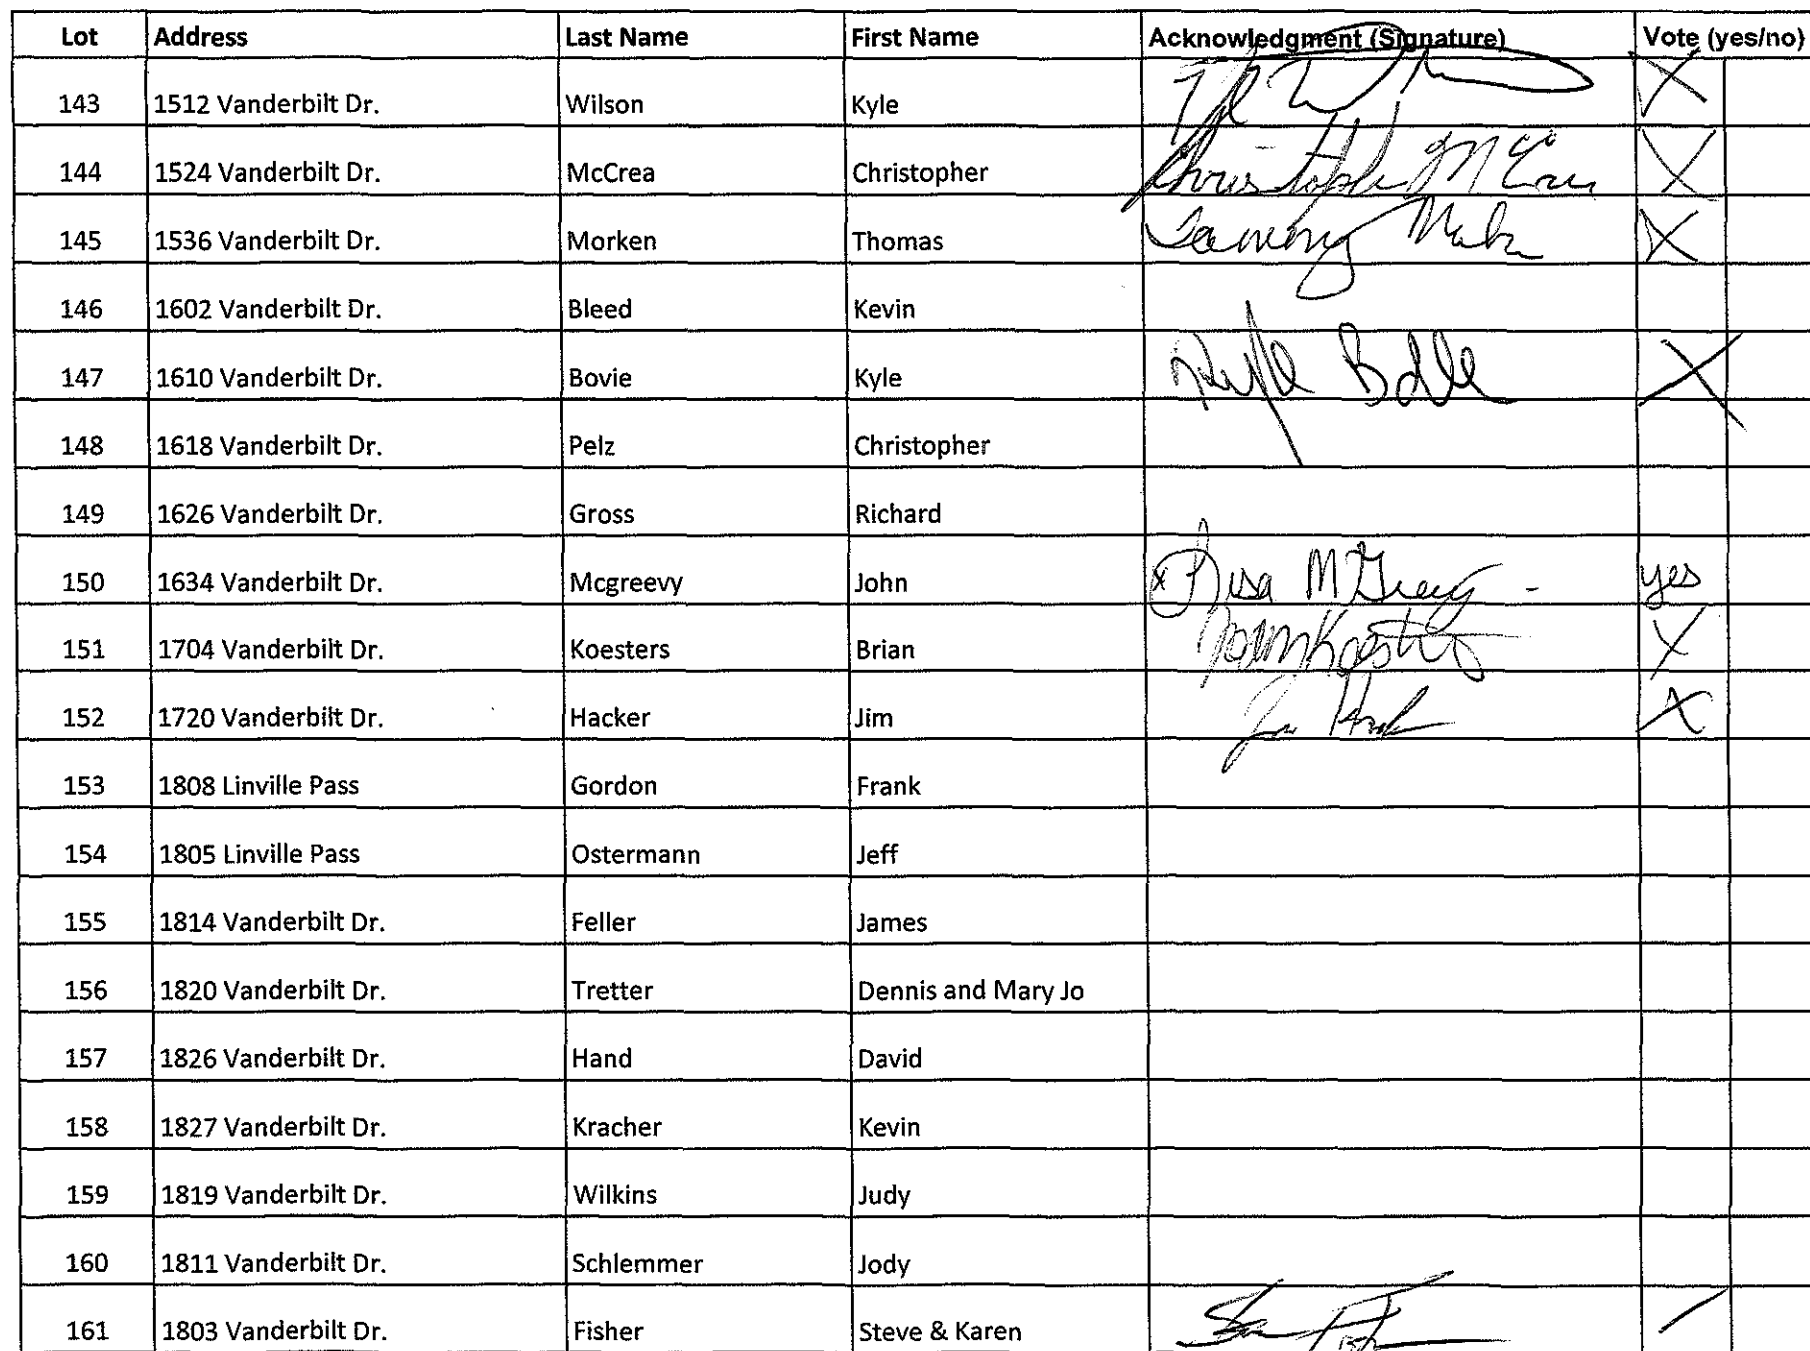 Lot Address Last Name First Name Acknowledgment (Signature) Vote (yes/no)
143 1512 Vanderbilt Dr. Wilson Kyle X
144 1524 Vanderbilt Dr. McCrea Christopher Christopher McCrea X
145 1536 Vanderbilt Dr. Morken Thomas X
146 1602 Vanderbilt Dr. Bleed Kevin
147 1610 Vanderbilt Dr. Bovie Kyle Kyle X
148 1618 Vanderbilt Dr. Pelz Christopher
149 1626 Vanderbilt Dr. Gross Richard
150 1634 Vanderbilt Dr. Mcgreevy John x Lisa McGreevy - yes
151 1704 Vanderbilt Dr. Koesters Brian Koesters X
152 1720 Vanderbilt Dr. Hacker Jim Jim X
153 1808 Linville Pass Gordon Frank
154 1805 Linville Pass Ostermann Jeff
155 1814 Vanderbilt Dr. Feller James
156 1820 Vanderbilt Dr. Tretter Dennis and Mary Jo
157 1826 Vanderbilt Dr. Hand David
158 1827 Vanderbilt Dr. Kracher Kevin
159 1819 Vanderbilt Dr. Wilkins Judy
160 1811 Vanderbilt Dr. Schlemmer Jody
161 1803 Vanderbilt Dr. Fisher Steve & Karen